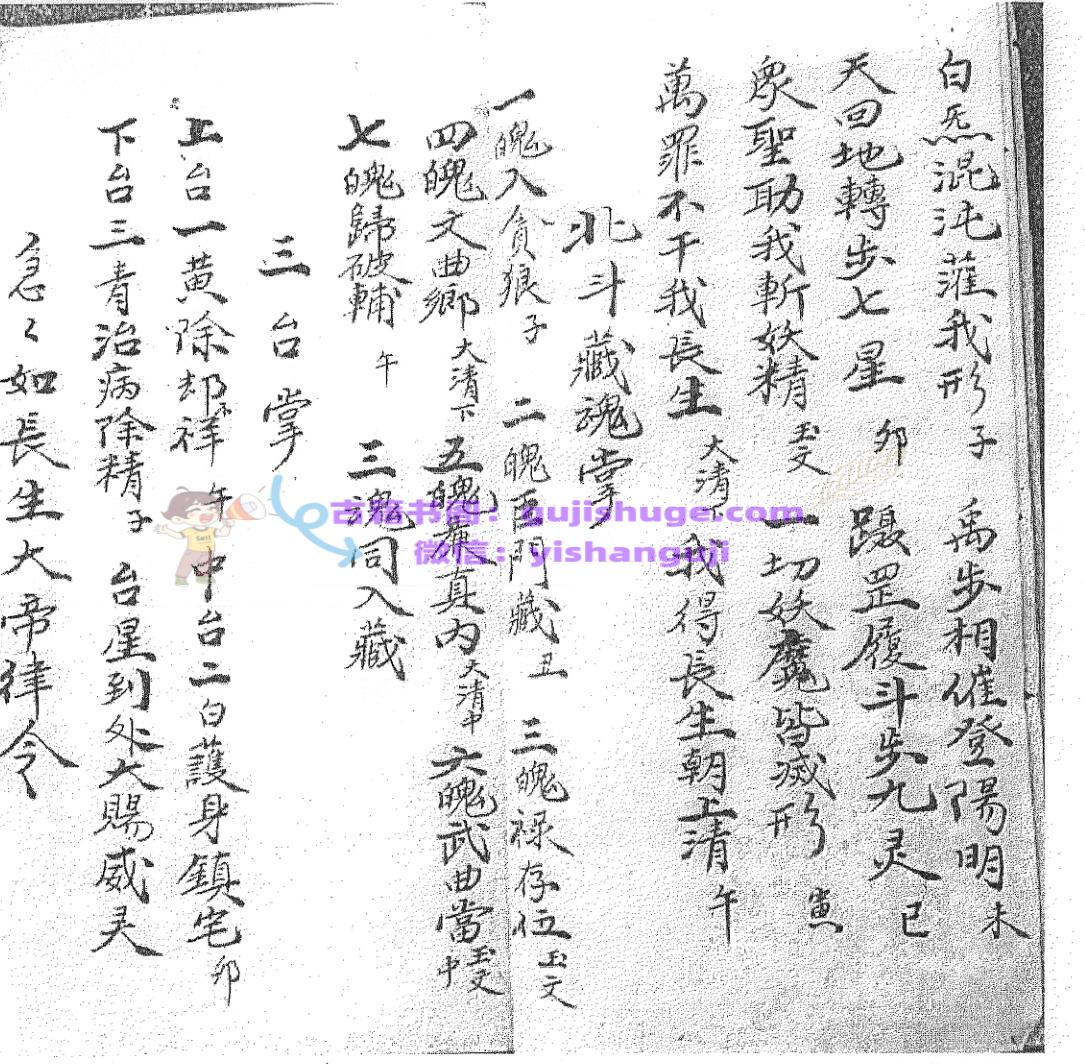 白炁混沌灌我形子 禹步相催登陽明未
天回地轉步七星卯 躡罡履斗步九灵巳
衆聖助我斬妖精玉文 一切妖魔皆滅形
萬罪不干我長生大清下 我得長生朝上清午
北斗藏魂掌
一魄入貪狼子 二魄巨門藏丑 三魄禄存伍玉文
四魄文曲鄉大清下 五魄真内大清中 六魄武曲當玉文中
七魄歸破輔午 三魂同入藏
三台掌
上台一黄除却不祥午 中台二白護身鎮宅卯
下台三青治病除精子 台星到处大賜威灵
急々如長生大帝律令
古籍书阁：gujishuge.com
微信：yishanguji